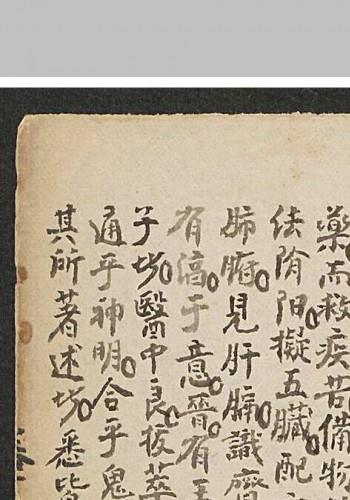 藥而救疾苦備物
法隂阳擬五臓配
肺腑見肝膈識
有偆于意晉有
子㘯醫中良㧞萃
通乎神明合乎鬼
其所著述㘯悉